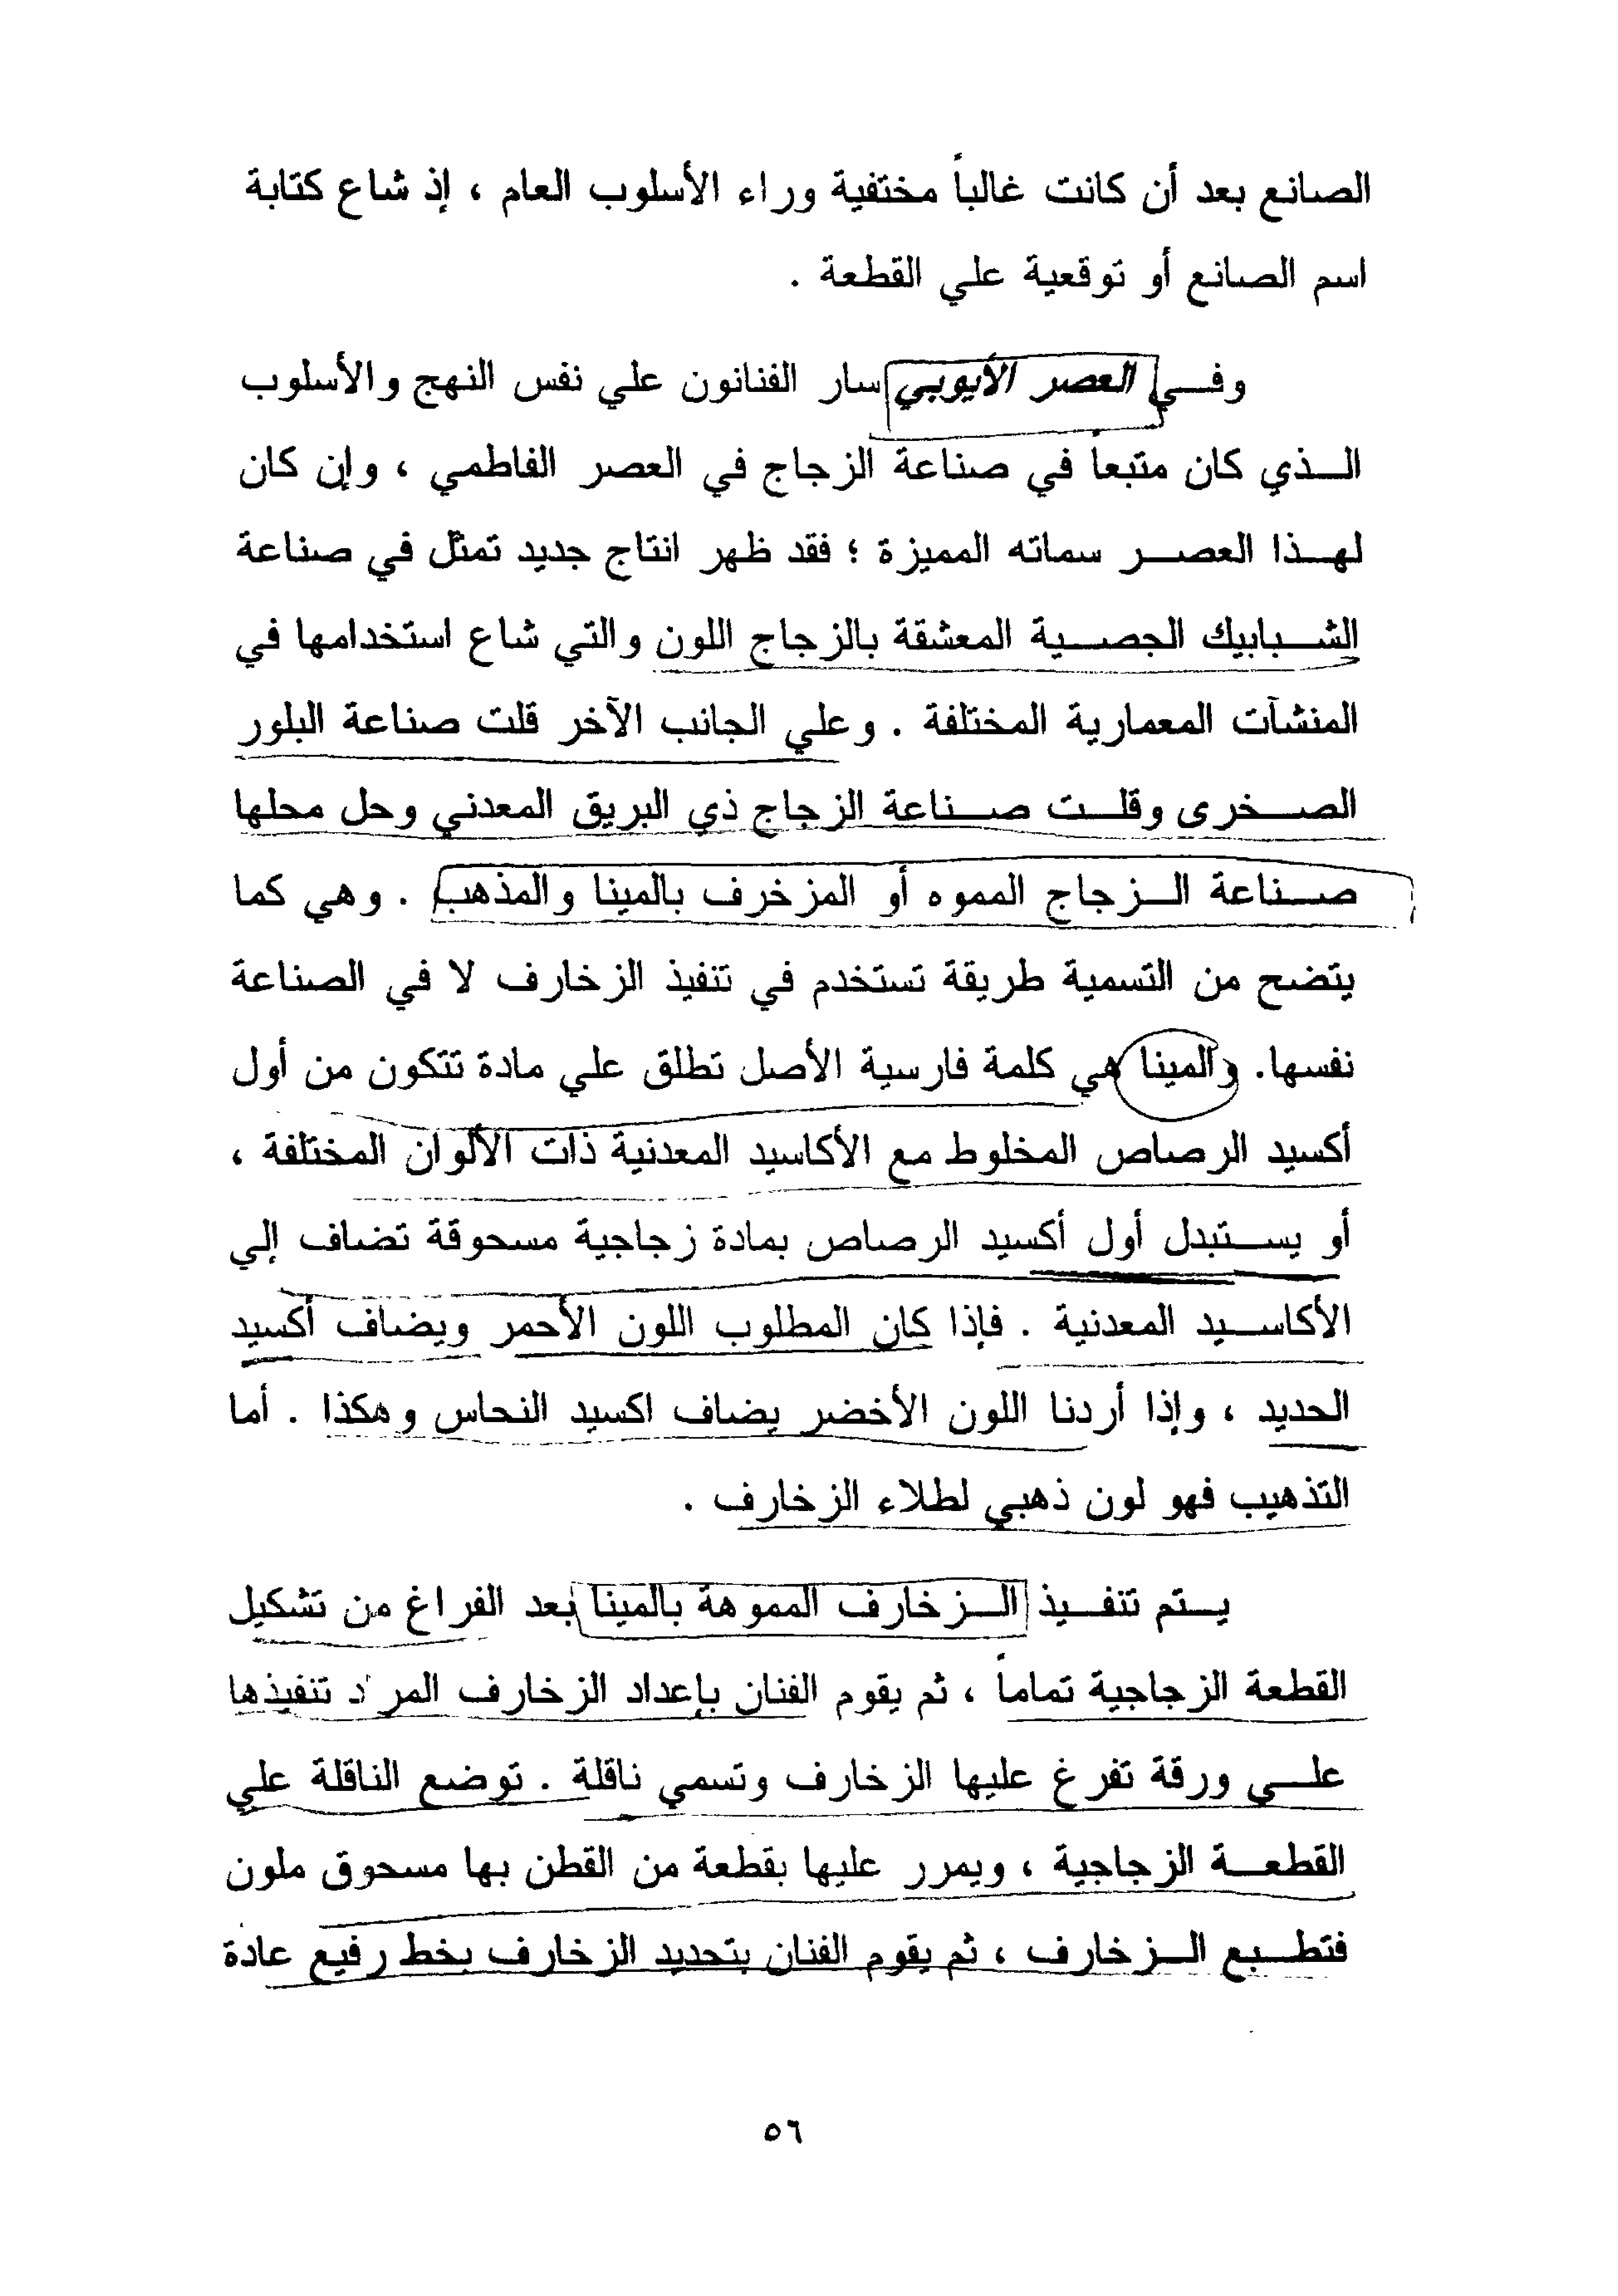 الصانع بعد أن كانت غالباً مختفية وراء الأسلوب العام ، إذ شاع كتابة
اسم الصانع أو توقعية علي القطعة .
وفي العصر الأيوبي سار الفنانون علي نفس النهج والأسلوب
الذي كان متبعاً في صناعة الزجاج في العصر الفاطمي ، وإن كان
لهذا العصر سماته المميزة ؛ فقد ظهر انتاج جديد تمثل في صناعة
الشبابيك الجصية المعشقة بالزجاج اللون والتي شاع استخدامها في
المنشآت المعمارية المختلفة . وعلي الجانب الآخر قلت صناعة البلور
الصخرى وقلت صناعة الزجاج ذي البريق المعدني وحل محلها
صناعة الزجاج المموه أو المزخرف بالمينا والمذهب . وهي كما
يتضح من التسمية طريقة تستخدم في تنفيذ الزخارف لا في الصناعة
نفسها. والمينا هي كلمة فارسية الأصل تطلق علي مادة تتكون من أول
أكسيد الرصاص المخلوط مع الأكاسيد المعدنية ذات الألوان المختلفة ،
أو يستبدل أول أكسيد الرصاص بمادة زجاجية مسحوقة تضاف إلي
الأكاسيد المعدنية . فإذا كان المطلوب اللون الأحمر ويضاف أكسيد
الحديد ، وإذا أردنا اللون الأخضر يضاف اكسيد النحاس وهكذا . أما
التذهيب فهو لون ذهبي لطلاء الزخارف .
يتم تنفيذ الزخارف المموهة بالمينا بعد الفراغ من تشكيل
القطعة الزجاجية تماماً ، ثم يقوم الفنان بإعداد الزخارف المراد تنفيذها
علي ورقة تفرغ عليها الزخارف وتسمي ناقلة . توضع الناقلة علي
القطعة الزجاجية ، ويمرر عليها بقطعة من القطن بها مسحوق ملون
فتطبع الزخارف ، ثم يقوم الفنان بتحديد الزخارف بخط رفيع عادة
٥٦